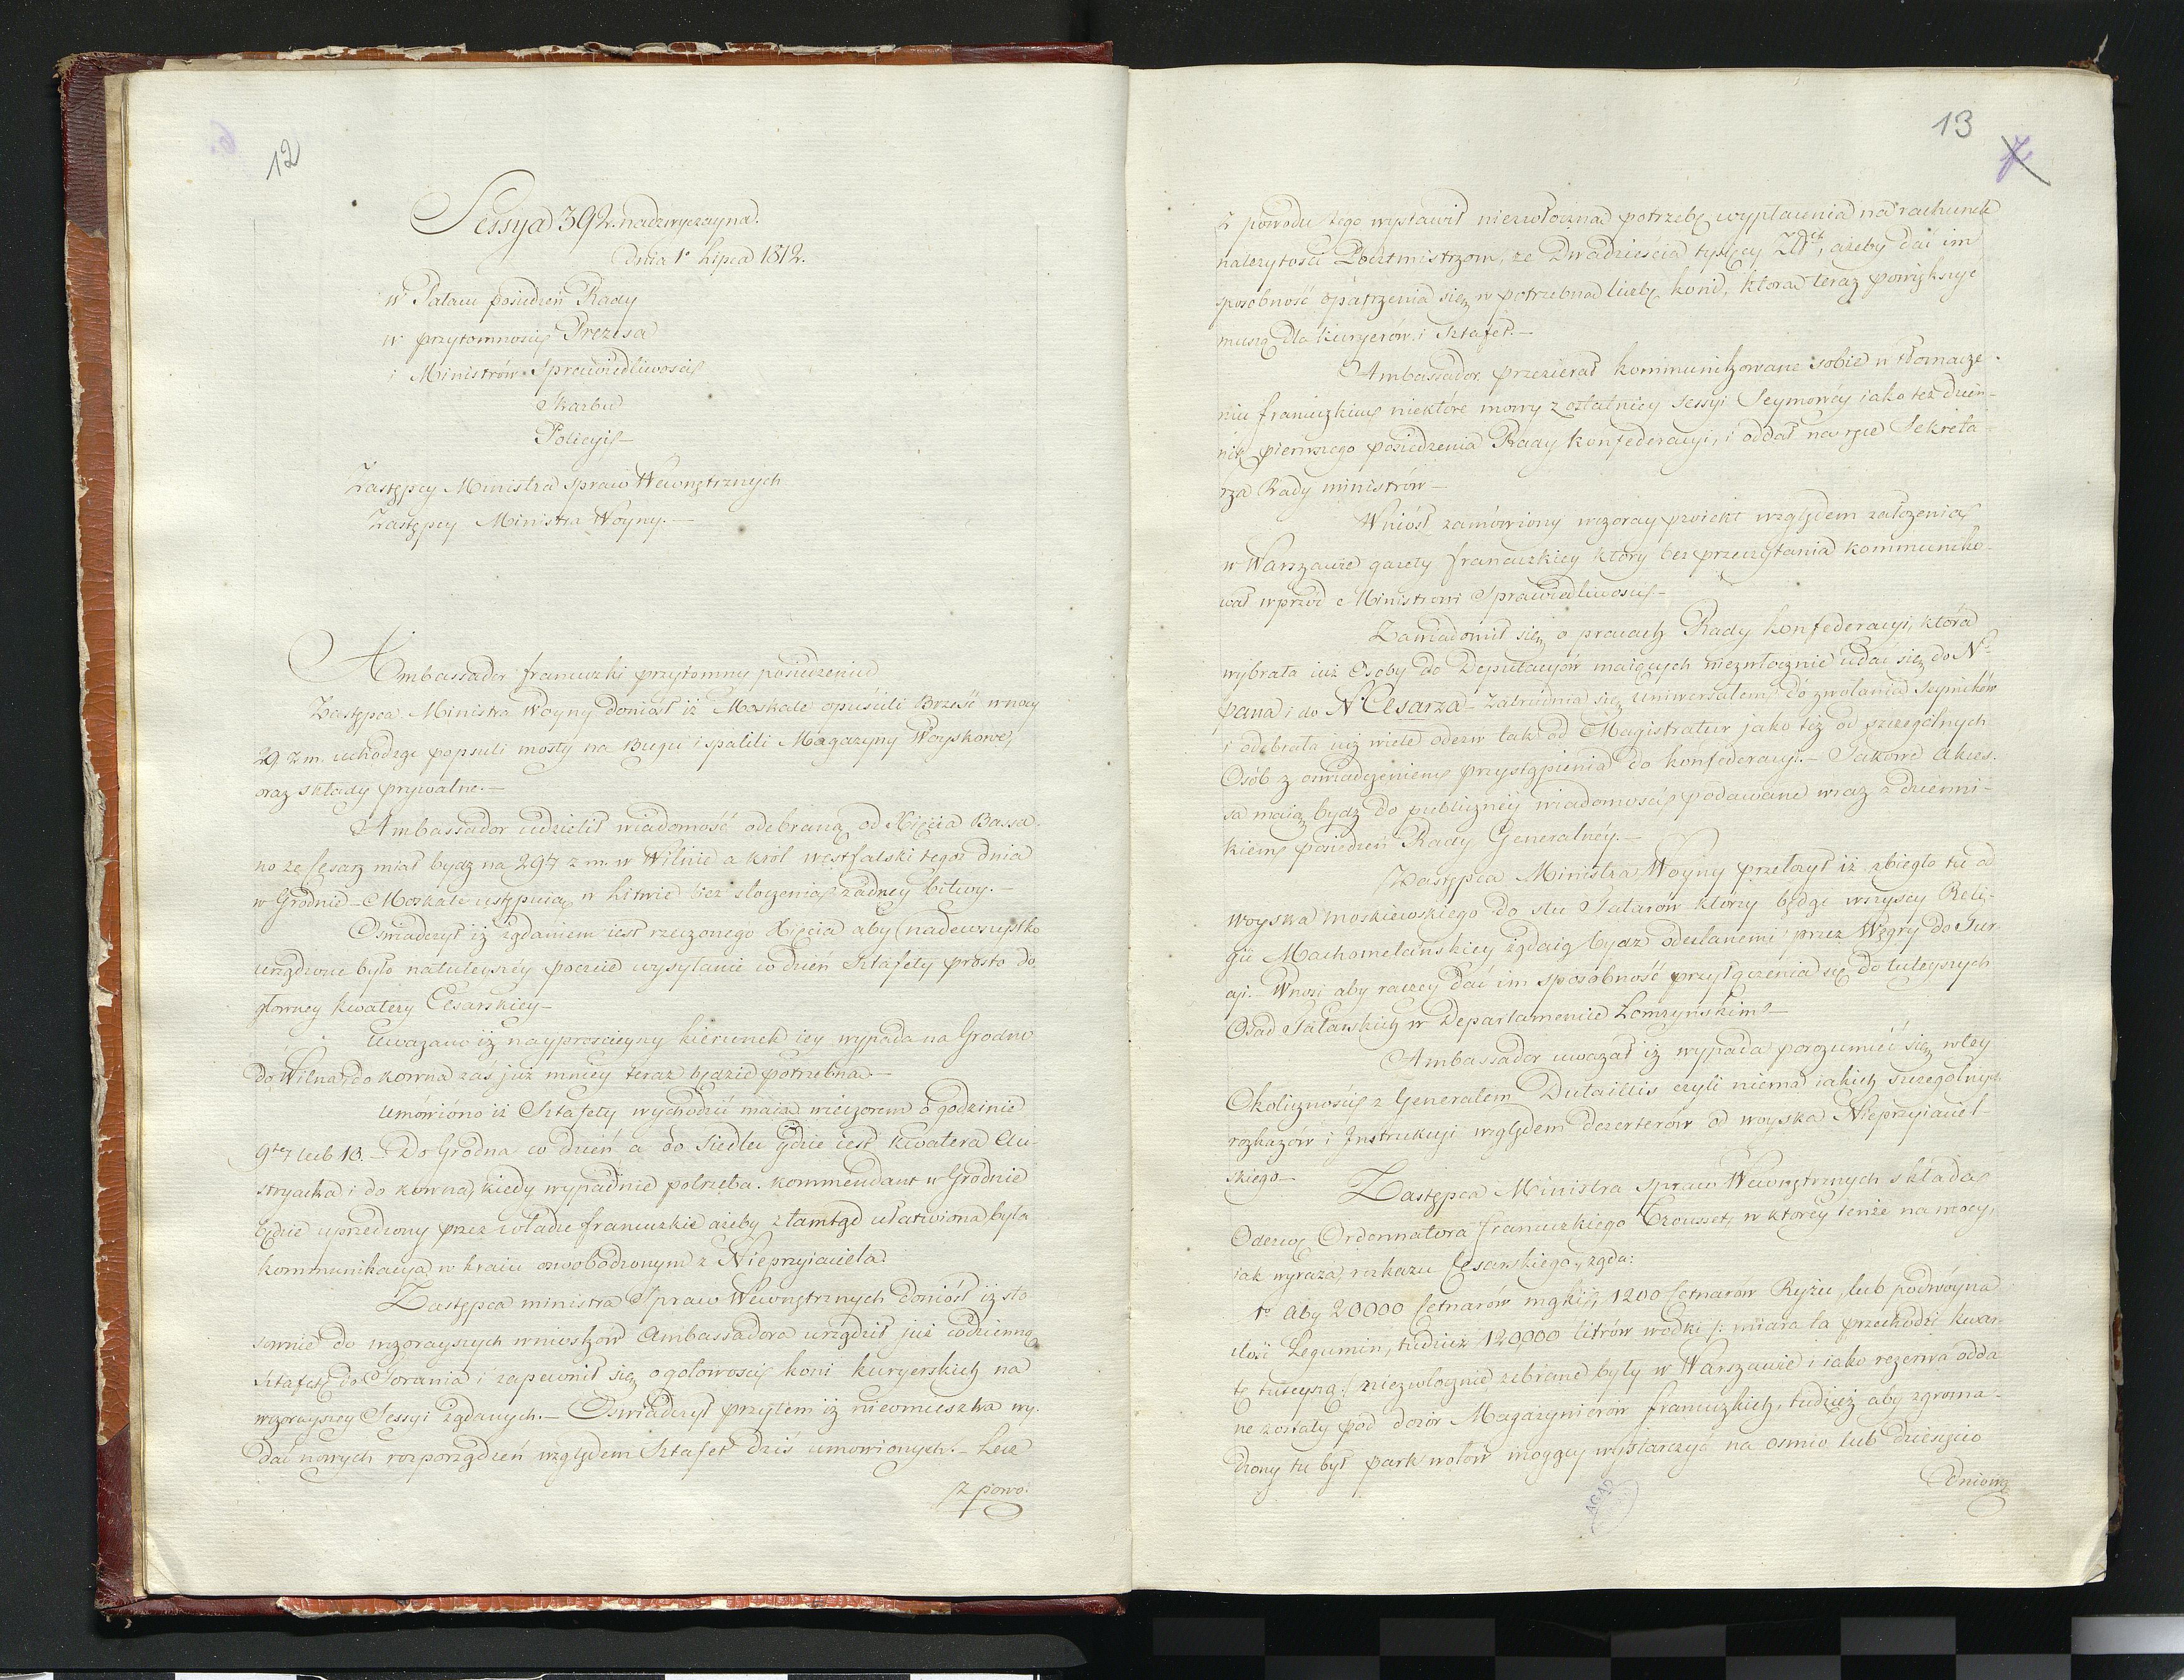 12
Sessya 392. nadzwyczayna.
Dnia 1o Lipca 1812.
w Pałacu posiedzeń Rady
w przytomności Prezesa
i Ministrów Sprawiedliwości
Skarbu
Policyi
Zastępcy Ministra Spraw Wewnętrznych
Zastępcy Ministra Woyny.—
Ambassador francuzki przytomny posiedzeniu
Zastępca Ministra Woyny doniosł iż Moskale opuścili Brześć w nocy
29. z m. uchodząc popsuli mosty na Bugu i spalili Magazyny Woyskowe,
oraz składy prywatne.—
Ambassador udzielił wiadomość odebraną od Xięcia Bassa-
no że Cesarz miał bydz na 29ty z m. w Wilnie a król westfalski tegoż dnia
w Grodnie – Moskale ustępuią w Litwie bez stoczenia żadney bitwy.—
Oświadczył iż żądaniem iest rzeczonego Xięcia aby nadewszystko
urządzone było natuteyszéy poczcie wysyłanie codzień Sztafety prosto do
głowney kwatery Cesarskiey—
Uważano iż nayprościeyszy kierunek iey wypada na Grodno
do Wilna, do Kowna zaś już mniey teraz będzie potrzebna.—
Umówiono iż Sztafety wychodzić maią wieczorem o godzinie
9tey lub 10.– Do Grodna co dzień a do Siedlec gdzie iest kwatera Au-
stryacka i do Kowna, kiedy wypadnie potrzeba. Kommendant w Grodnie
będzie uprzedzony przez władze francuzkie ażeby ztamtąd ułatwiona była
kommunikacya w kraiu oswobodzonym z Nieprzyiaciela.
Zastępca ministra Spraw Wewnętrznych doniósł iż sto-
sownie do wczorayszych wniosków Ambassadora urządził już codzienną
sztafetę do Torunia i zapewnił się o gotowości koni kuryerskich na
wczorayszey Sessyi żądanych.— Oświadczył przytem iż nieomieszka wy-
dać nowych rozporządzeń względem Sztafet dziś umowionych.– Lecz
z powo:
13
7
z powodu tego wystawił niezwłoczną potrzebę wypłacenia na rachunek
należytości Pocztmistrzom, ze Dwadzieścia tysięcy Zł, ażeby dać im
sposobność opatrzenia się w potrzebną liczbę koni, którą teraz powiększyć
muszą dla kuryerów i Sztafet.—
Ambassador przezierał kommunikowane sobie w tłomacze-
niu francuzkiem niektóre mowy z ostatniey Sessyi Seymowéy iako też dzien-
nik pierwszego posiedzenia Rady konfederacyi, i oddał na ręce Sekreta-
rza Rady ministrów—
Wniósł zamówiony wczoray proiekt względem założenia
w Warszawie gazety francuzkiey który bez przeczytania kommuniko-
wał wprzód Ministrowi Sprawiedliwości—
Zawiadomił się o pracach Rady konfederacyi, która
wybrała iuż Osoby do Deputacyów maiących niezwłocznie udać się do No
pana i do No Cesarza– Zatrudnia się uniwersałem do zwołania Seymików
i odebrała iuż wiele odezw tak od Magistratur jako też od szczególnych
Osób z oświadczeniem przystąpienia do konfederacyi.– Takowe Akces-
sa maią bydz do publicznéy wiadomości podawane wraz z dzienni-
kiem posiedzeń Rady Generalnéy.—
Zastępca Ministra Woyny przełożył iż zbiegło tu od
woyska moskiewskiego do stu Tatarów którzy będąc wszyscy Reli-
gii Machometańskiey żądaią bydz odesłanemi przez Węgry do Tur-
cyi.– Wnosi aby raczey dać im sposobność przyłączenia się do tuteyszych
Osad Tatarskich w Departamencie Łomżyńskim—
Ambassador uważał iż wypada porozumieć się w tey
Okoliczności z Generałem Dutaillis czyli niema iakich szczególnych
rozkazów i Instrukcyi względem dezerterów od woyska Nieprzyiaciel-
skiego—
Zastępca Ministra Spraw Wewnętrznych składa
Odezwę Ordonnatora francuzkiego Trousset, w którey tenże na mocy,
iak wyraża, rozkazu Cesarskiego, żąda:
1o aby 20000 Cetnarów mąki, 1200 Cetnarów Ryżu, lub podwóyna
ilość Legumin, tudzież 120,000 litrów wodki /: miara ta przechodzi kwar-
tę tuteyszą :/ niezwłocznie zebrane były w Warszawie i iako rezerwa odda-
ne zostały pod dozór Magazynierów francuzkich, tudzież aby zgroma-
dzony tu był park wołów mogący wystarczyć na osmio lub dziesięcio
Dniową
AGAD